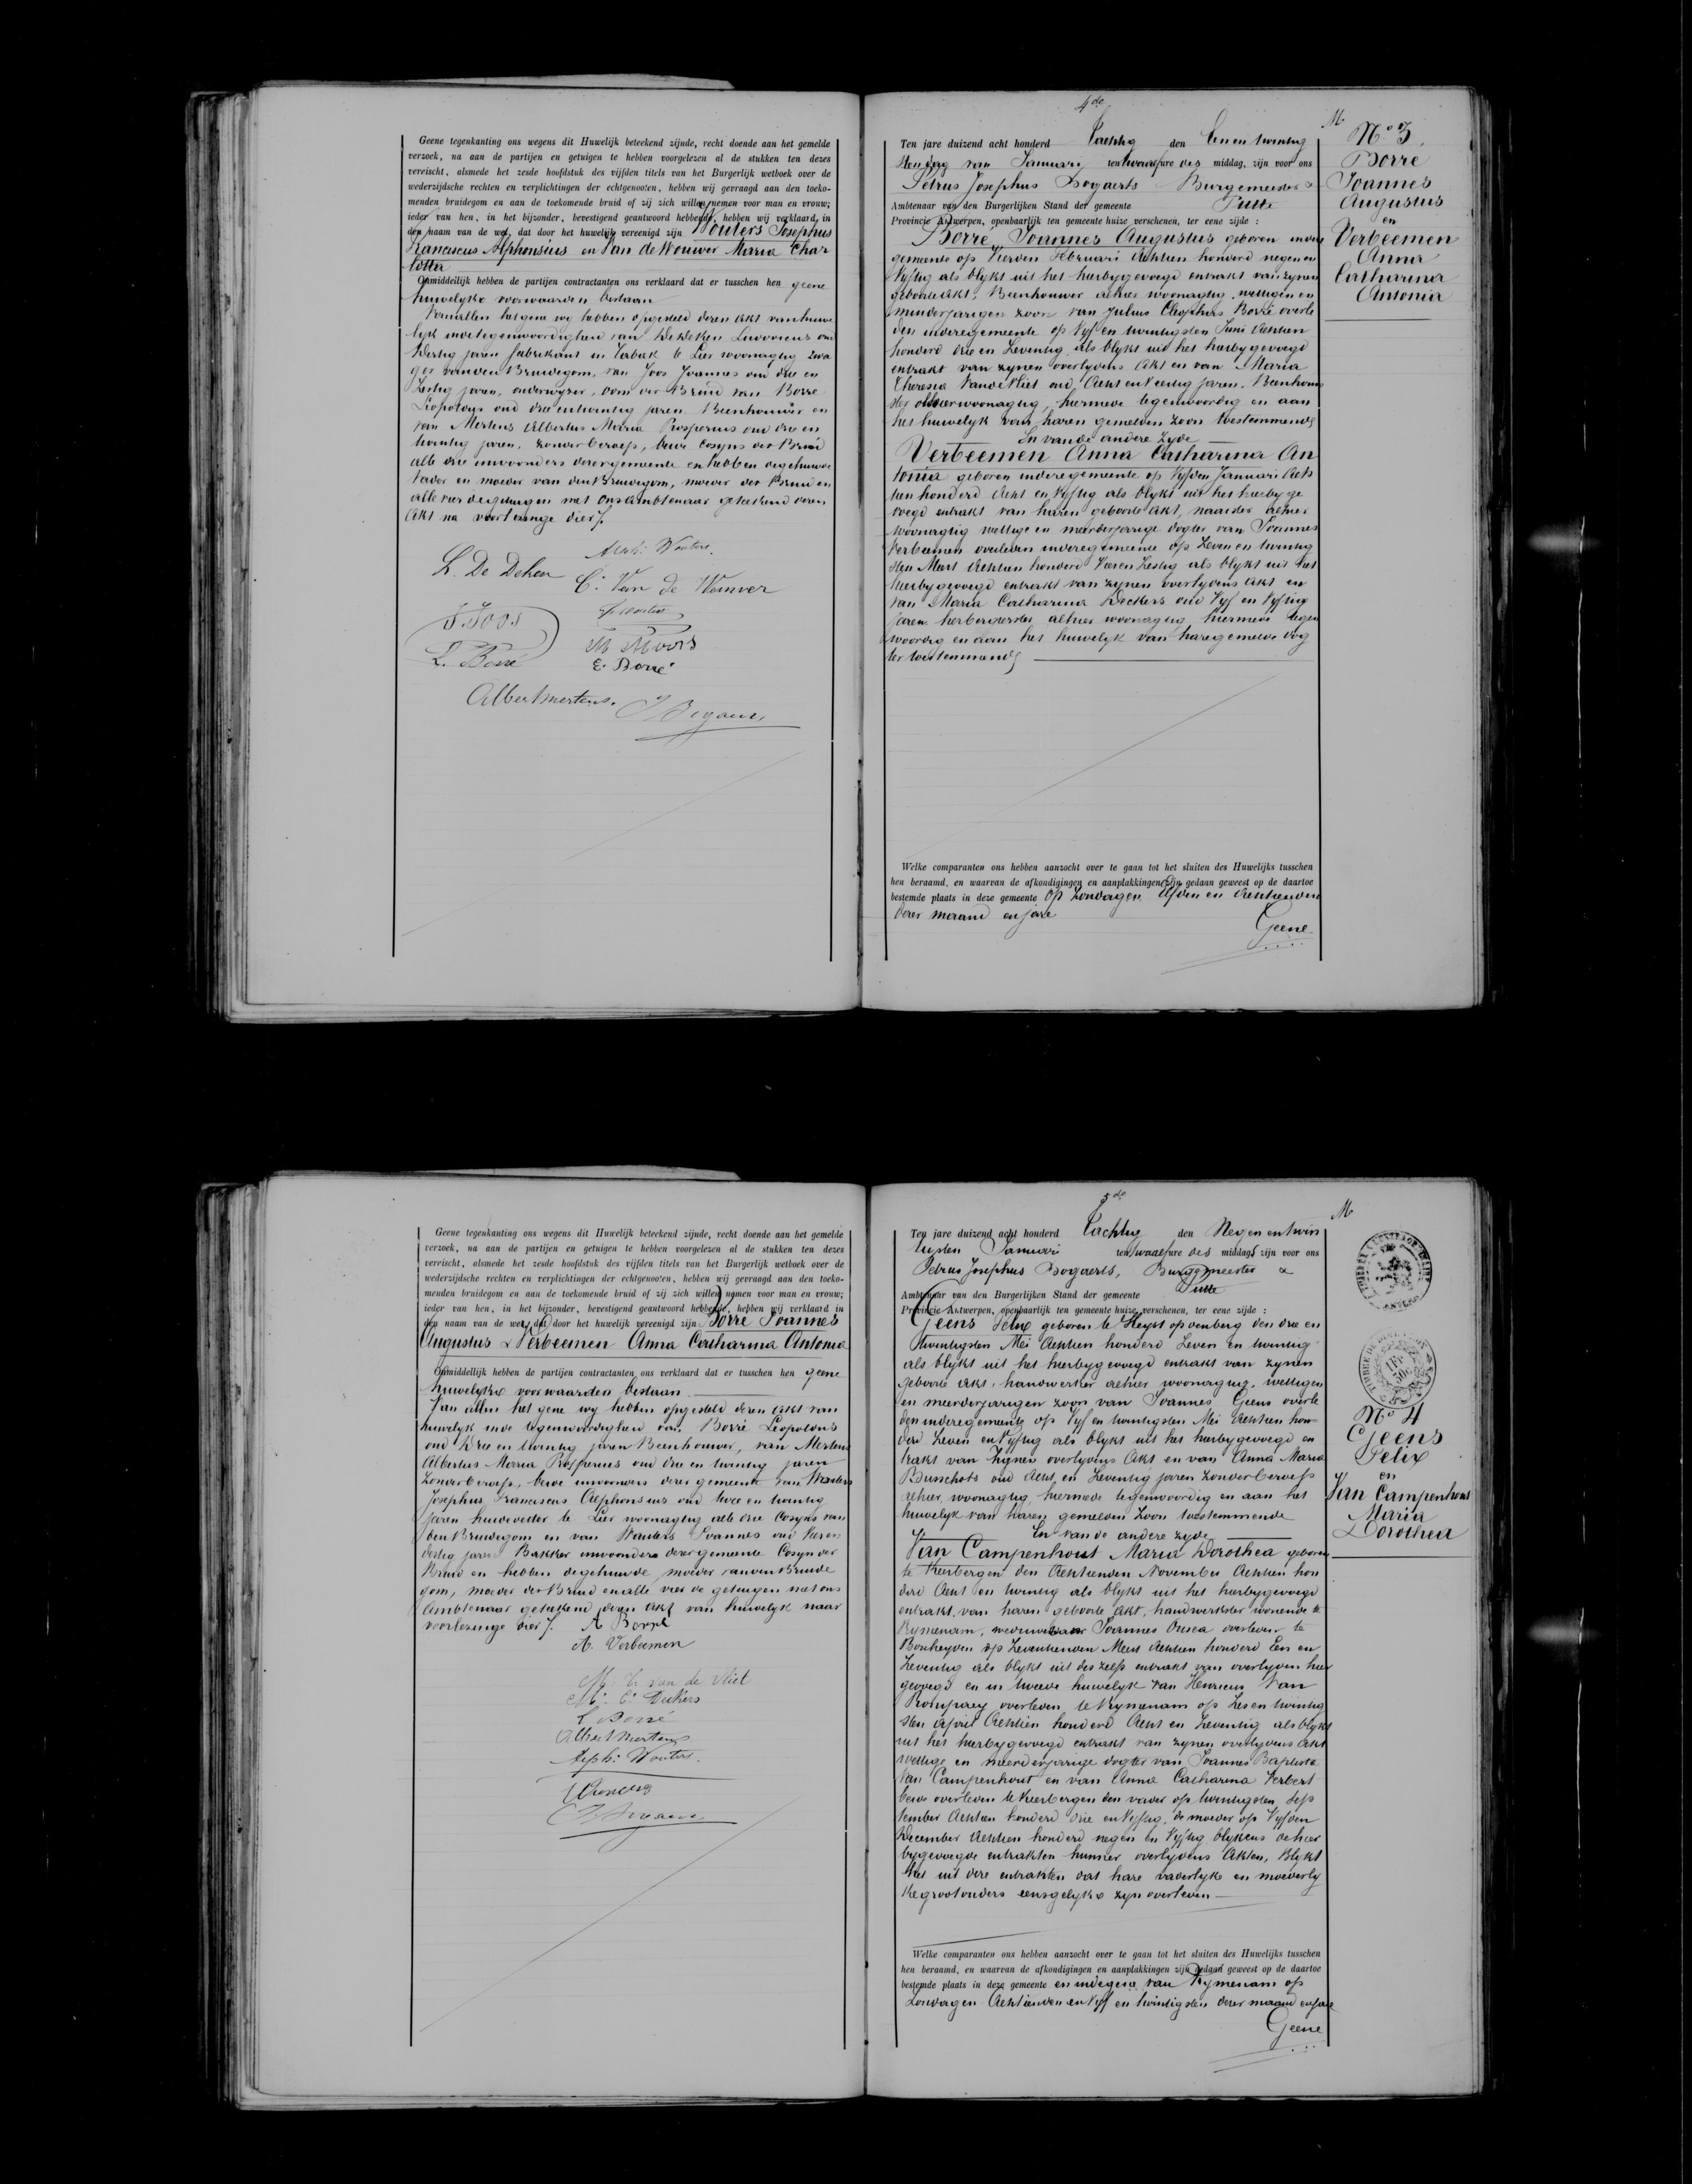 Geene tegenkanting ons wegens dit Huwelijk beteekend zijnde, recht doende aan het gemelde
verzoek, na aan de partijen en getuigen te hebben voorgelezen al de stukken ten dezes
vereischt, alsmede het zesde hoofdstuk des vijfden titels van het Burgerlijk wetboek over de
wederzijdsche rechten en verplichtingen der echtgenooten, hebben wij gevraagd aan den toeko-
menden bruidegom en aan de toekomende bruid of zij zich willen nemen voor man en vrouw;
ieder van hen, in het bijzonder, bevestigend geantwoord hebbende, hebben wij verklaard, in
den naam van de wet, dat door het huwelijk vereenigd zijn Wouters Josephus
Franciscus Alphonsius en Van de Wouwer Maria Char
lotta
Onmiddellijk hebben de partijen contractanten ons verklaard dat er tusschen hen geene
huwelykse voorwaarden bestaan
Van allen hetgene wy hebben opgesteld dezen Akt van huwe
lyk in de tegenwoordigheid van De Deken Livovicus oud
dertig jaren fabrikant in Tabak te Lier woonagtig zwa
ger van den Bruidegom, van Joos Joannes oud drie en
zestig jaren, onderwyzer, oom der Bruid van Borré
Leopoldus oud drie en twintig jaren Beenhouwer en
van Mertens Albertus Maria Prosperus oud drie en
twintig jaren, zonder beroep, beide cosyns der Bruid
alle drie inwoonders dezer gemeente en hebben de gehuwde
vader en moeder van den Bruidegom, moeder der Bruid en
alle vier de getuigen met ons Ambtenaar geteekend dezen
Akt na voorlezinge dier.
Alph: Wouters.
L. De Deken
C: Van de Wouwer
J. Wouters
J. Joos
M Moors
L. Borré
E. Borré
Albert Mertens.
J Bogaerts
4de
M
Ten jare duizend acht honderd Tachtig den Een en twintig
sten dag van Januari ten twaalf ure des middag, zijn voor ons
Petrus Josephus Bogaerts Burgemeester &
Ambtenaar van den Burgerlijken Stand der gemeente Putte
Provincie Antwerpen, openbaarlijk ten gemeente huize verschenen, ter eene zijde :
Borré Joannes Augustus geboren in deze
gemeente op Vierden Februari Achtien honderd negen en
Vyftig als blykt uit het hierbygevoegd extrakt van zynen
geboorte Akt, Beenhouwer alhier woonagtig, wettigen en
minderjarigen zoon van Julius Cleophas Borré overle
den in deze gemeente op Vyf en twintigsten Juni Achtien
honderd drie en Zeventig als blykt uit het hierby gevoegd
extrakt van zynen overlydens Akt en van Maria
Theresia Van de Vliet oud Acht en Veertig jaren, Beenhouw
ster alhier woonagtig, hiermede tegenwoordig en aan
het huwelyk van haren gemelden zoon toestemmende
En van de andere zyde
Verbeemen Anna Catharina An
tonia geboren in deze gemeente op Vyfden Januari Ach
tien honderd Acht en Vyftig als blykt uit het hierby ge
voegd extrakt van haren geboorte Akt, naaister alhier
woonagtig wettige en meerderjarige dogter van Joannes
Verbeemen overleden in deze gemeente op Zeven en twintig
sten Meert Achtien honderd Vier en Zestig als blykt uit het
hierbygevoegd extrakt van zynen overlydens Akt en
van Maria Catharina Deckers oud Vyf en Vyftig
jaren herbergierster alhier woonagtig, hiermede tegen
woordig en aan het huwelyk van hare gemelde dog
ter toestemmende
Welke comparanten ons hebben aanzocht over te gaan tot het sluiten des Huwelijks tusschen
hen beraamd, en waarvan de afkondigingen en aanplakkingen zijn gedaan geweest op de daartoe
bestemde plaats in deze gemeente op Zondagen Elfden en Achttienden
dezer maand en jare
Geene
No 3.
Borré
Joannes
Augustus
en
Verbeemen
Anna
Catharina
Antonia
Geene tegenkanting ons wegens dit Huwelijk beteekend zijnde, recht doende aan het gemelde
verzoek, na aan de partijen en getuigen te hebben voorgelezen al de stukken ten dezes
vereischt, alsmede het zesde hoofdstuk des vijfden titels van het Burgerlijk wetboek over de
wederzijdsche rechten en verplichtingen der echtgenooten, hebben wij gevraagd aan den toeko-
menden bruidegom en aan de toekomende bruid of zij zich willen nemen voor man en vrouw;
ieder van hen, in het bijzonder, bevestigend geantwoord hebbende, hebben wij verklaard in
den naam van de wet, dat door het huwelijk vereenigd zijn Borré Joannes
Augustus & Verbeemen Anna Catharina Antonia
Onmiddellijk hebben de partijen contractanten ons verklaard dat er tusschen hen geene
huwelykse voorwaarden bestaan
Van allen het gene wy hebben opgesteld dezen Akt van
huwelyk in de tegenwoordigheid van Borré Leopoldus
oud Drie en twintig jaren Beenhouwer, van Mertens
Albertus Maria Prosperus oud drie en twintig jaren
Zonder beroep, beide inwoonders dezer gemeente van Wouters
Josephus Franciscus Alphonsius oud twee en twintig
jaren te Lier woonagtig alle drie Cosyns van
den Bruidegom en van Wouters Joannes oud Vier en
dertig jaren Bakker inwoonder dezer gemeente Cosyn der
Bruid en hebben de gehuwde, moeder van den Bruide
gom, moeder der Bruid en alle vier de getuigen met ons
Ambtenaar geteekend dezen Akt van huwelyk naar
voorlezinge dier.
A Borré
A. Verbeemen
M. T. van de Vliet
M: C: Deckers
L Borré
Albert Mertens
Alph: Wouters.
J Bogaerts
5de
M
Ten jare duizend acht honderd Tachtig den Negen en twin
tigsten Januari ten twaalf ure des middags zijn voor ons
Petrus Josephus Bogaerts, Burgemeester &
Ambtenaar van den Burgerlijken Stand der gemeente Putte
Provincie Antwerpen, openbaarlijk ten gemeente huize verschenen, ter eene zijde :
Geens Felix geboren te Heyst op den berg den drie en
twintigsten Mei Achtien honderd Zeven en twintig
als blykt uit het hierbygevoegd extrakt van zynen
geboorte Akt, handwerker alhier woonagtig, wettigen
en meerderjarigen zoon van Joannes Geens overle
den in deze gemeente op Vyf en twintigsten Mei Achtien hon
derd Zeven en Vyftig als blykt uit het hierbygevoegd ex
trakt van Zynen overlydens Akt en van Anna Maria
Busschots oud Acht en Zeventig jaren zonder beroep
alhier woonagtig, hiermede tegenwoordig en aan het
huwelyk van haren gemelden Zoon toestemmende
En van de andere zyde
Van Campenhout Maria Dorothea geboren
te Keerbergen den Achtienden November Achtien hon
derd Acht en twintig als blykt uit het hierbygevoegd
extrakt van haren geboorte Akt, handwerkster wonende te
Rymenam, weduwe van Joannes overleden te
Bonheyden op Zeventienden Meert Achtien honderd Een en
Zeventig als blykt uit des zelfs extrakt van overlyden hier
gevoegd en in tweede huwelyk van Henricus Van
Rompaey overleden te Rymenam op Zes en twintig
sten April Achtien honderd Acht en Zeventig als blykt
uit het hierbygevoegd extrakt van zynen overlydens Akt
wettige en meerderjarige dogter van Joannes Baptista
Van Campenhout en van Anna Catharina Verbert
beide overleden te Keerbergen den vader op twintigsten Sep
tember Achtien honderd drie en Vyftig, de moeder op Vyfden
December Achtien honderd negen en Vyftig blykens de hier
bygevoegde extrakten hunner overlydens Akten, Blykt
het uit deze extrakten dat hare vaderlyke en moederly
ke grootouders eensgelykx zyn overleden
Welke comparanten ons hebben aanzocht over te gaan tot het sluiten des Huwelijks tusschen
hen beraamd, en waarvan de afkondigingen en aanplakkingen zijn gedaan geweest op de daartoe
bestemde plaats in deze gemeente en in degene van Rymenam op
Zondagen Achtienden en Vyf en twintigsten dezer maand en jare
Geene
No 4
Geens
Felix
en
Van Campenhout
Maria
Dorothea